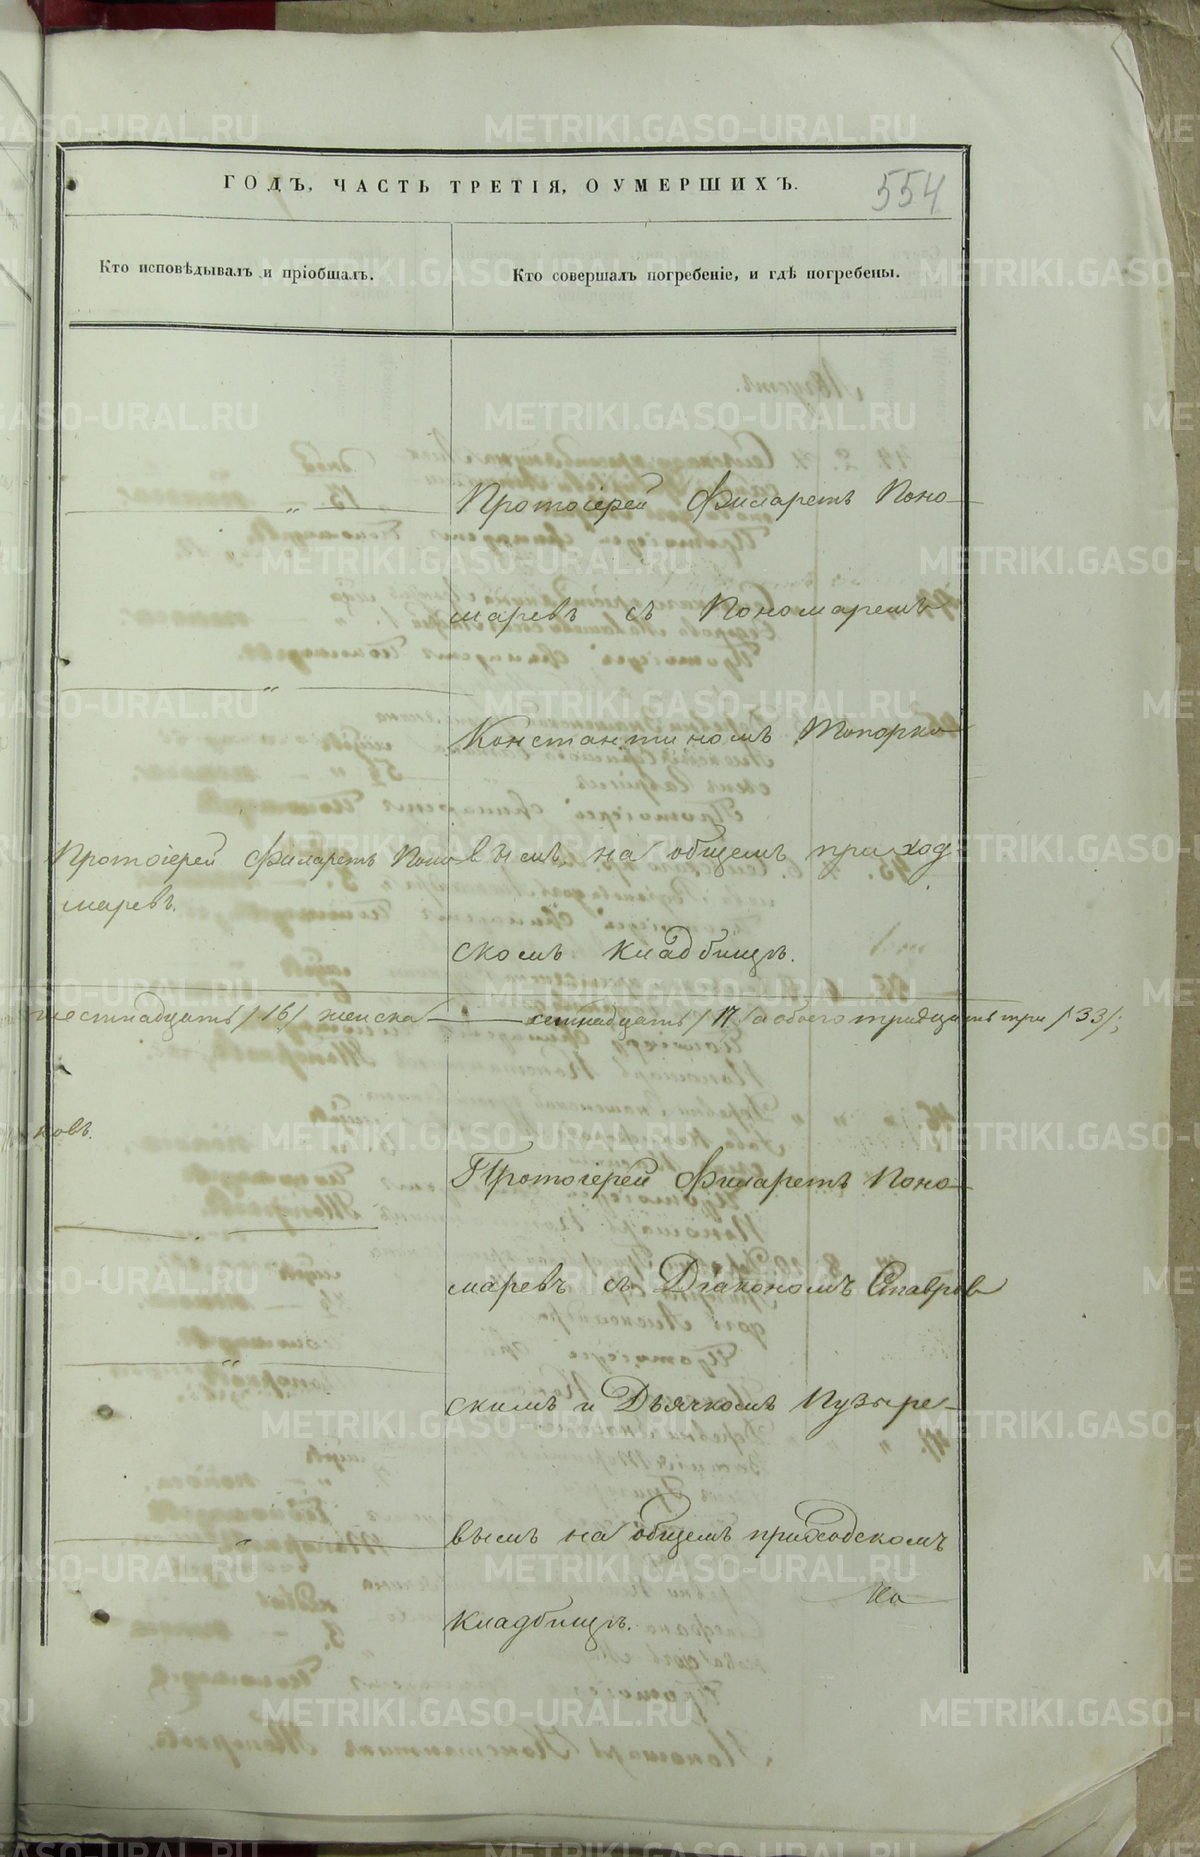 ГОДЪ, ЧАСТЬ ТРЕТІЯ, О УМЕРШИХЪ.
554
Кто исповѣдывалъ и пріобщалъ.
Кто совершалъ погребеніе, и гдѣ погребены.
Протоіерей Филаретъ Поно-
маревъ съ Пономаремъ
Константиномъ Топорко
Протоіерей Филаретъ Поно
маревъ.
вымъ на общемъ приход-
скомъ кладбищѣ.
шестнадцать /16/ женска семнадцать /17/ а обоего тридцать три /33/;
ковъ.
Протоіерей Филаретъ Поно-
маревъ съ Діакономъ Ставров
скимъ и Дьячкомъ Пузыре-
вымъ на общемъ приходскомъ
кладбищѣ.
На
METRIKI.GASO-URAL.RU